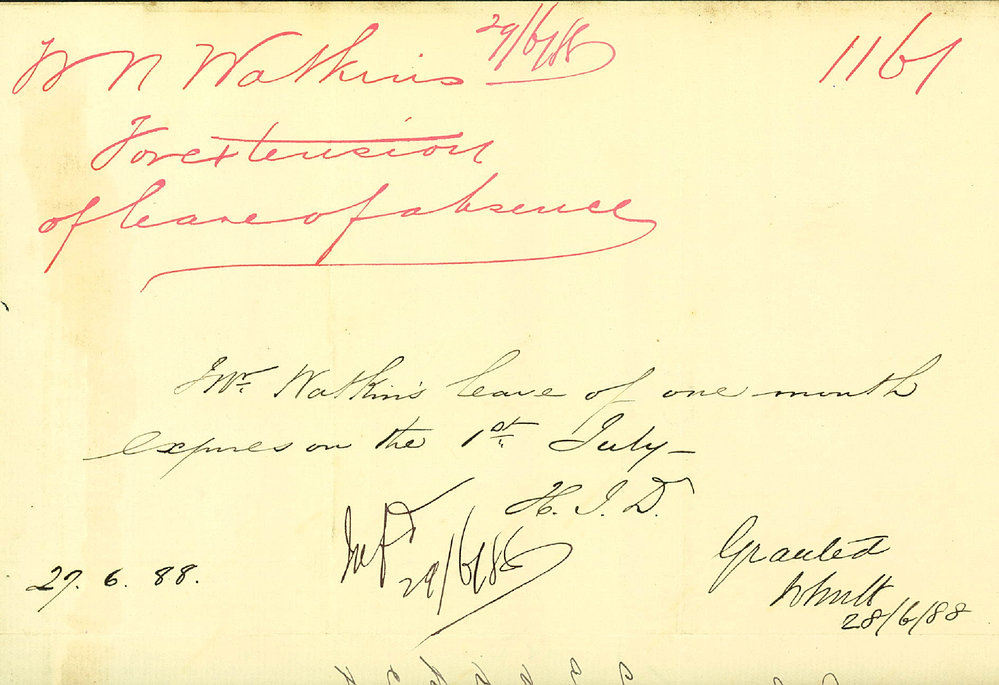 W N Watkins 29/6/88 1161
For extension
of leave of absence
Mr. Watkin's leave of one month
expires on the 1st July—
H. J. D.
Granted
27. 6. 88. 29/6/88
28/6/88